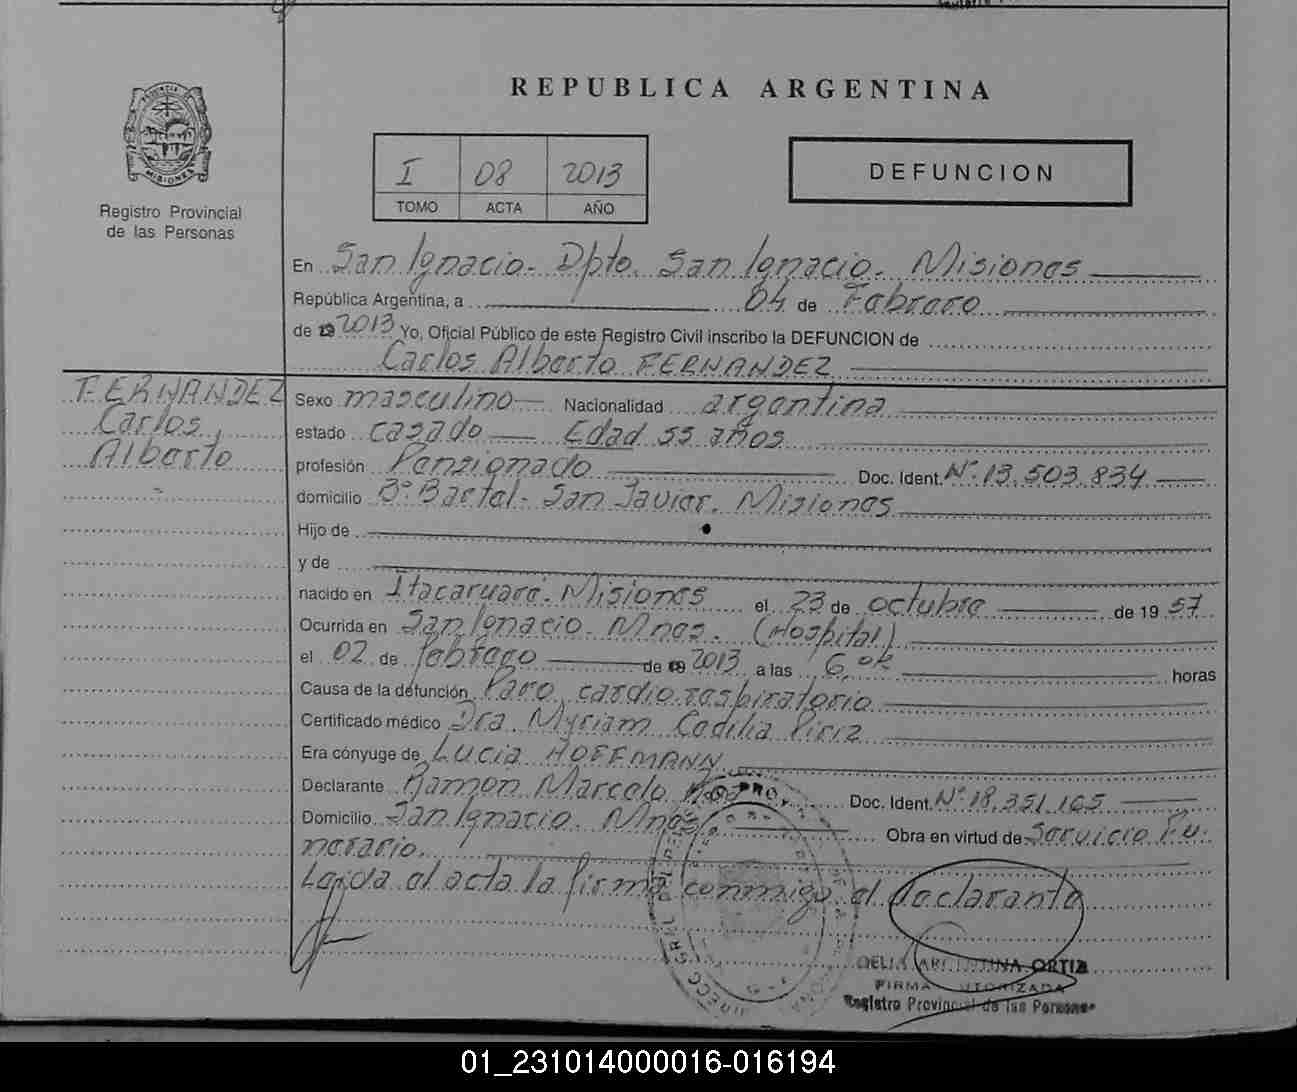 REPUBLICA ARGENTINA
PROVINCIA DE MISIONES
Registro Provincial
de las Personas
I 08 2013
TOMO ACTA AÑO
DEFUNCION
En San Ignacio - Dpto. San Ignacio. Misiones
República Argentina, a 04 de Febrero
de 19 2013 Yo, Oficial Público de este Registro Civil inscribo la DEFUNCION de
Carlos Alberto FERNANDEZ
FERNANDEZ
Carlos
Alberto
Sexo masculino Nacionalidad argentina
estado casado Edad 55 años
profesión Pensionado Doc. Ident. Nº 13.503.834
domicilio Bº Bartel - San Javier. Misiones
Hijo de
y de
nacido en Itacaruaré. Misiones el 23 de octubre de 19 57
Ocurrida en San Ignacio. Mnes. (Hospital)
el 02 de febrero de 19 2013 a las 6,ok horas
Causa de la defunción Paro cardiorespiratorio
Certificado médico Dra. Myriam Cedilia Piriz
Era cónyuge de Lucia HOFFMANN
Declarante Ramon Marcelo Doc. Ident. Nº 18.351.165
Domicilio San Ignacio. Mnes. Obra en virtud de Servicio Fu-
nerario.
Leída el acta la firma conmigo el declarante
DELIA ARGENTINA ORTIZ
FIRMA AUTORIZADA
Registro Provincial de las Personas
01_231014000016-016194